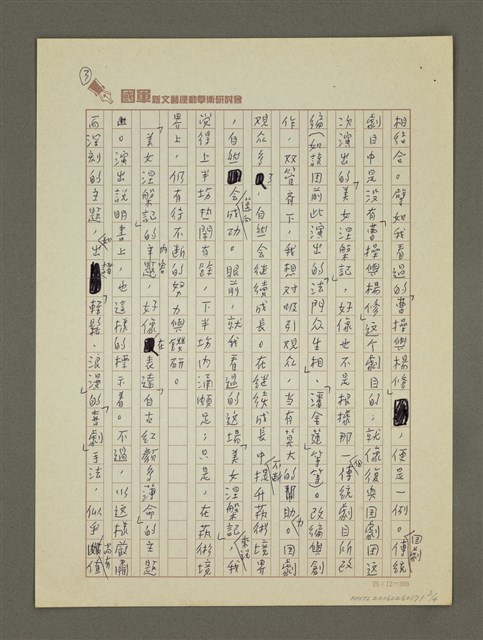 ③
國軍新文藝運動學術研討會
相結合。譬如我看過的「曹操與楊修」，便是一例。傳統國劇
劇目中是沒有「曹操與楊修」这个劇目的。就像復興国劇団这
次演出的「美女涅槃記」，好像也不是根據那一個傳統劇目所改
編（如該团前此演出的「法門众生相」、「潘金蓮」等等）。改編與創
作，双管齐下，我想对吸引观众，当有莫大的幫助力。国劇
观众多了，自然会继續成長。在继續成長中不断提升葯術境界
，自然會邁向成功。眼前，就我看過的这場「美女涅槃記」來說，我
覺得上半場热鬧有餘，下半場内涵頗足；只是，在葯術境
界上，仍有待不断的努力與鑽研。
「美女涅槃記」的主題内容，好像在表達自古紅顏多薄命的主題
。演出說明書上，也這樣的標示着。不過，以这樣嚴肅
而深刻的主題，出之和諧「輕鬆、浪漫的喜劇」手法，似乎尚有值
25×12=300